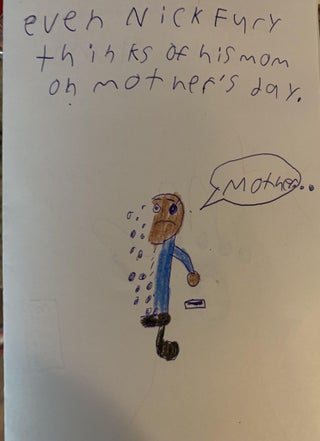 even Nick Fury
thinks of his mom
on mother's day.
Mother...